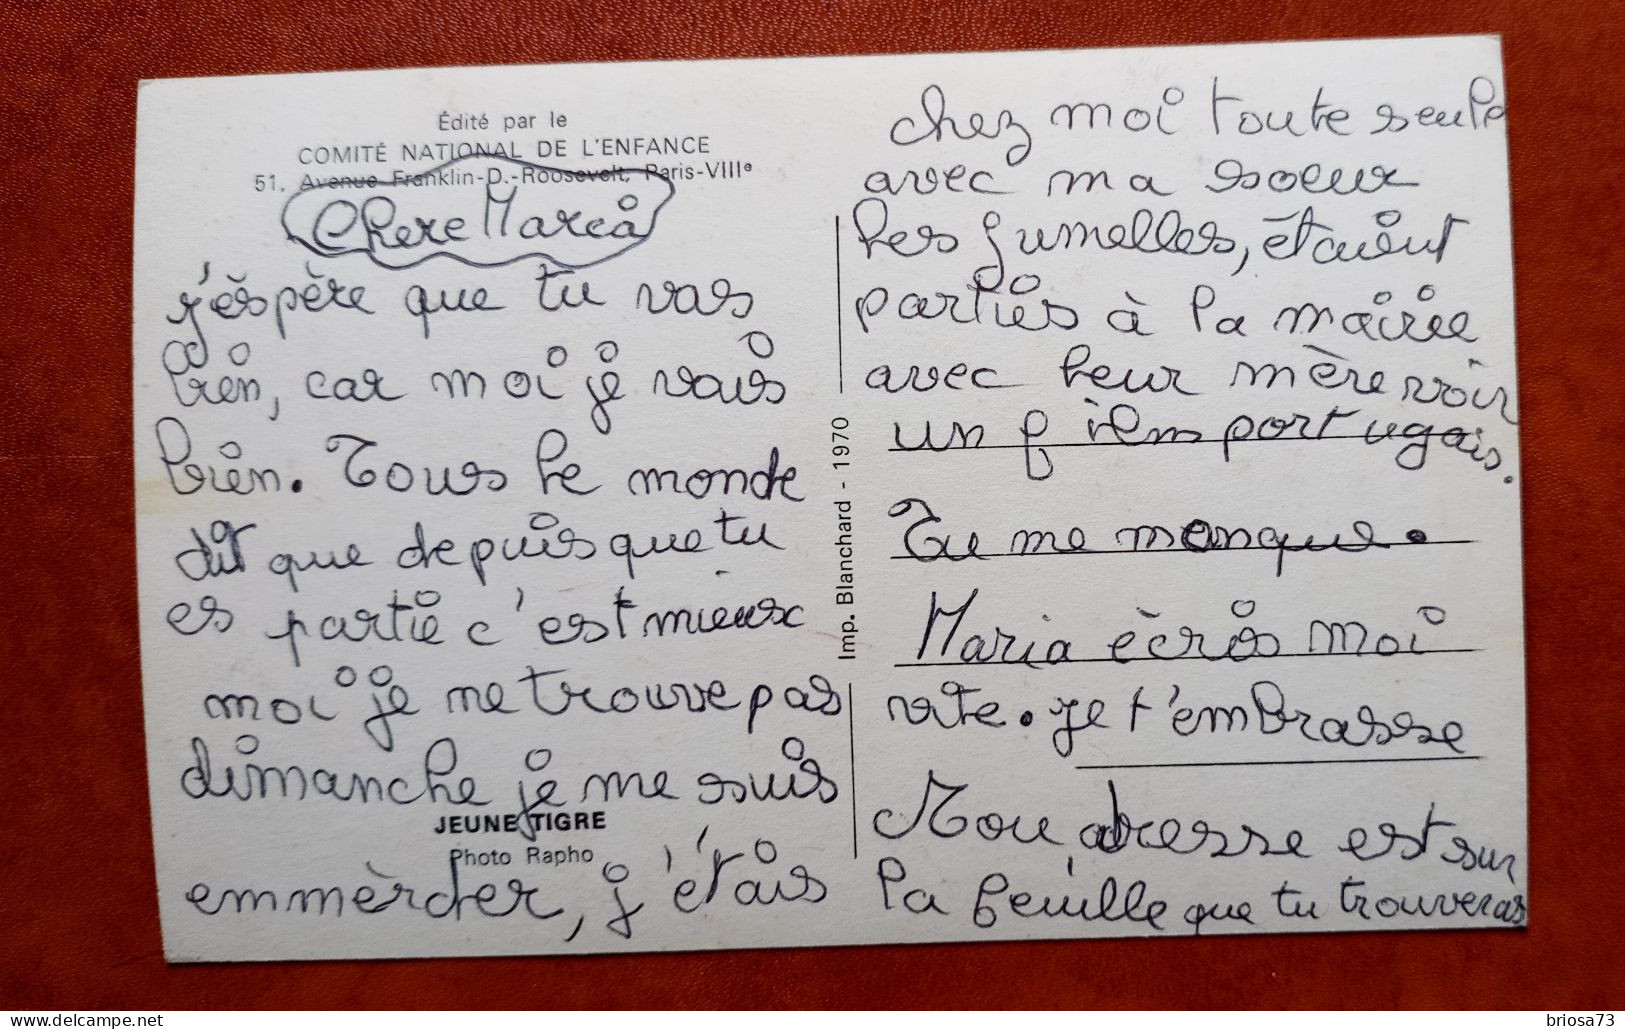 Édité par le
COMITÉ NATIONAL DE L'ENFANCE
51, Avenue Franklin-D.-Roosevelt, Paris-VIIIe
Chere Maria
j'éspère que tu vas
bien, car moi je vais
bien. Tous le monde
dit que depuis que tu
es partie c'est mieux
moi je ne trouve pas
dimanche je me suis
JEUNE TIGRE
Photo Rapho
emmèrder, j'étais
Imp. Blanchard - 1970
chez moi toute seule
avec ma soeur
les jumelles, étaient
parties à la mairie
avec leur mère voir
un film portugais.
Tu me manque.
Maria ècris moi
vite. je t'embrasse
Mon adresse est sur
la feuille que tu trouveras
briosa73